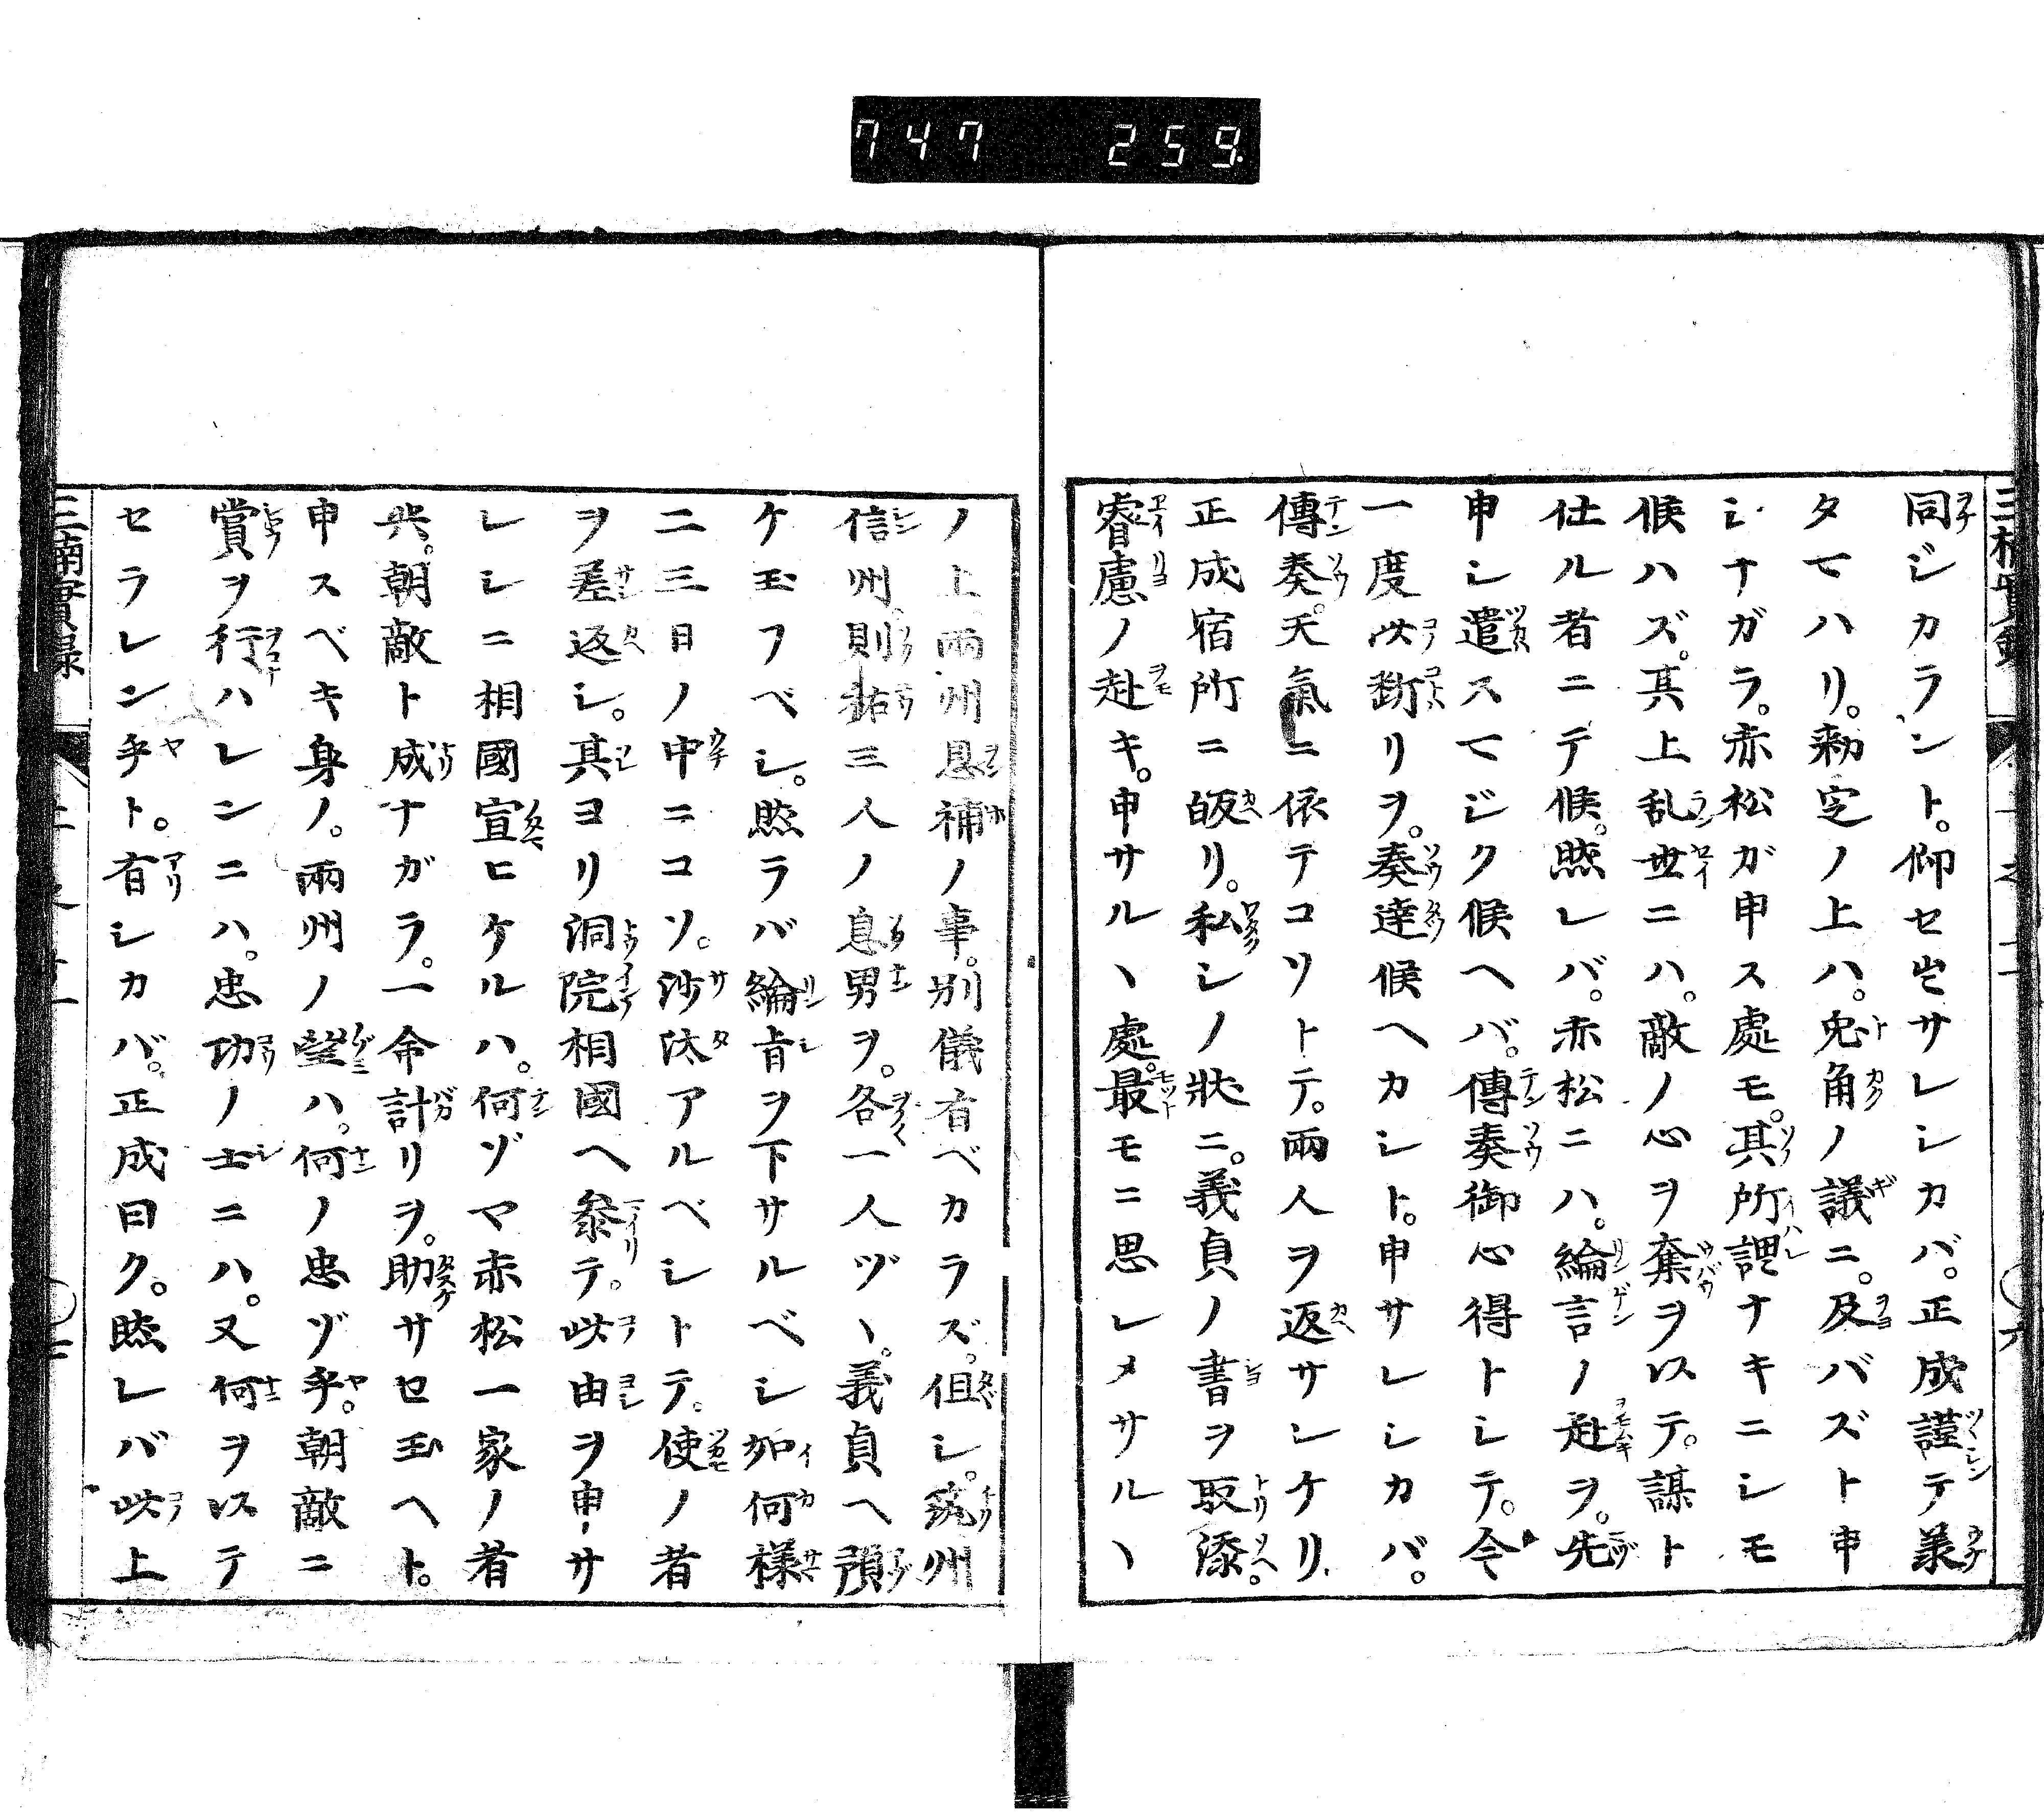 747 259
同ジカラント。仰セ出サレシカバ。正成謹テ羕
タマハリ。勅定ノ上ハ。兎角ノ議ニ。及バズト申
シナガラ。赤松ガ申ス處モ。其所謂ナキニシモ
候ハズ。其上乱世ニハ。敵ノ心ヲ奪ヲ以テ。謀ト
仕ル者ニテ候。然レバ。赤松ニハ。綸言ノ趣ヲ。先
申シ遣スマジク候ヘバ。傳奏御心得トシテ。今
一度此斷リヲ。奏達候ヘカシト。申サレシカバ。
傳奏。天氣ニ依テコソトテ。兩人ヲ返サレケリ
正成宿所ニ皈リ。私シノ狀ニ。義貞ノ書ヲ取添。
睿慮ノ赴キ。申サルヽ處。最モニ思レメサルヽ
ノ上兩州恩補ノ事。別儀有ベカラズ。但シ。筑州
信州。則祐三人ノ息男ヲ。各一人ヅヽ。義貞ヘ預
ケ玉フベシ。然ラバ綸旨ヲ下サルベシ如何樣
二三日ノ中ニコソ。沙汰アルベシトテ。使ノ者
ヲ差返シ。其ヨリ洞院相國ヘ參テ。此由ヲ申サ
レシニ相國宣ヒケルハ。何ゾマ赤松一家ノ者
共。朝敵ト成ナガラ。一命計リヲ。助サセ玉ヘト。
申スベキ身ノ。兩州ノ望ハ。何ノ忠ゾ乎。朝敵ニ
賞ヲ行ハレンニハ。忠功ノ士ニハ。又何ヲ以テ
セラレン乎ト。有シカバ。正成曰ク。然レバ此上